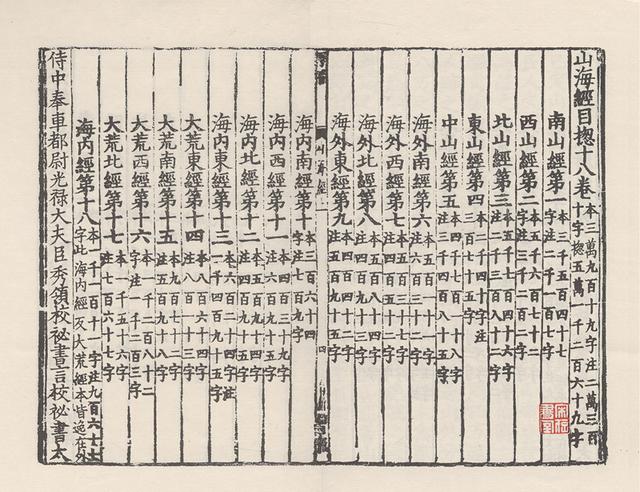 山海經目捴十八卷 本三萬九百十九字注二萬三百十字捴五萬一千二百六十九字
南山經第一 本三千五百四十七字注二千一百七字
西山經第二 本五千六百七十二字注三千二百二字
北山經第三 本五千七百四十六字注二千三百八十二字
東山經第四 本二千四十字注三百七十五字
中山經第五 本四千七百一十八字注
海外南經第六 本五百一十一字注六百二十二字
海外西經第七 本五百三十七字注
海外北經第八 本五百八十四字注
海外東經第九 本四百四十二字注五百九十五字
山海經
海內南經第十 本三百六十四字注
海內西經第十一 本四百三十九字注六百九十五字
海內北經第十二 本五百九十四字注
海內東經第十三 本六百二十四字注一千四百九十五字
大荒東經第十四 本八百六十四字注
大荒南經第十五 本九百七十二字注五百九十八字
大荒西經第十六 本一千二百八十二字注一千二百三字
大荒北經第十七 本一千五十六字注七百六十七字
海內經第十八 本一千一百一十一字注九百六十七字此海內經及大荒經本皆逸在外
侍中奉車都尉光祿大夫臣秀領校祕書言校祕書太